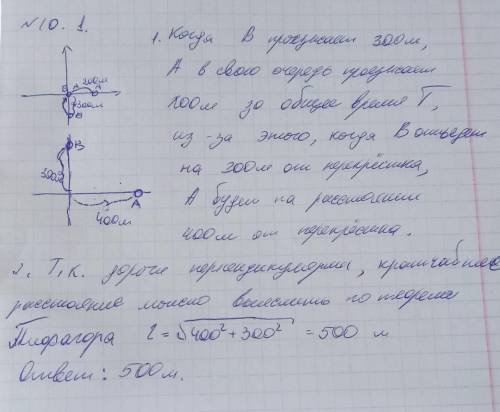 №10.1.
1. Когда В проезжает 300м,
А в свою очередь проезжает
200м за общее время Т,
из-за этого, когда В отъедет
на 300м от перекрёстка,
А будет на расстоянии
400м от перекрёстка.
200м
В А А
300м
В
В
300
А
400м
2. Т.к. дороги перпендикулярны, кратчайшее
расстояние можно вычислить по теореме
Пифагора l = √400² + 300² = 500 м
Ответ: 500м.